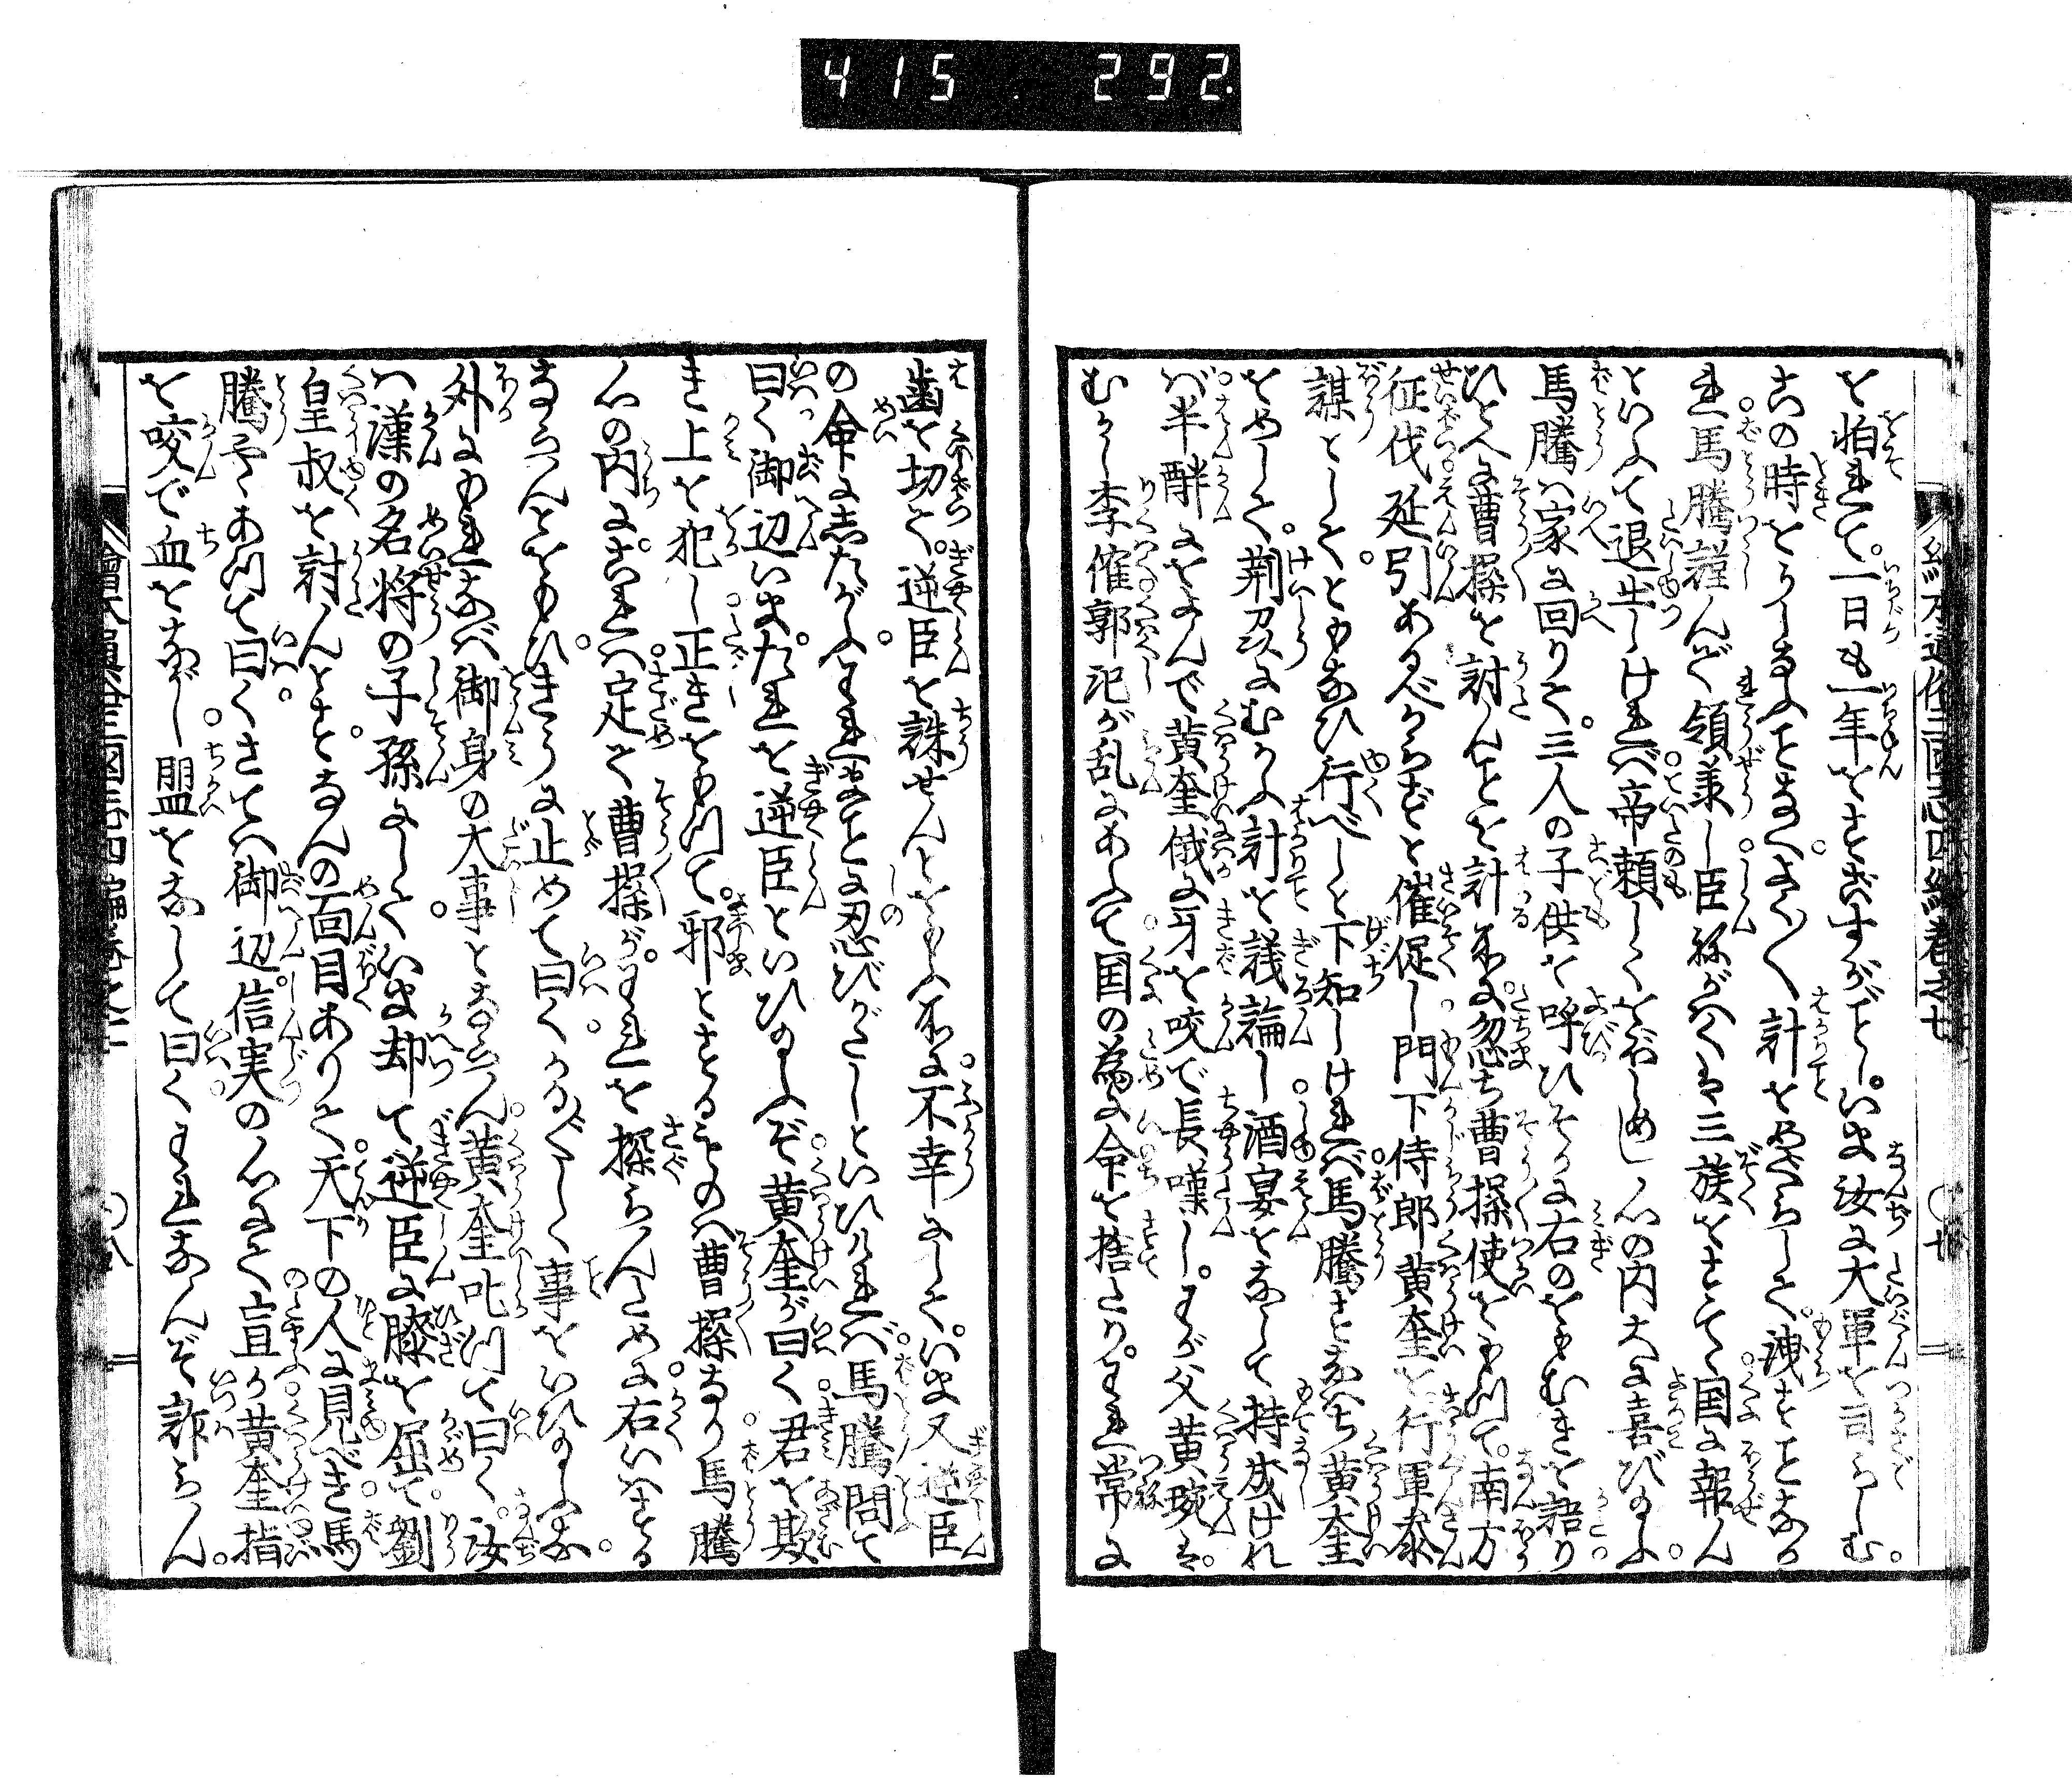 415.292.
を怕れて。一日も一年をすごすがごとし。いま汝に大軍を司らしむ。
この時をうしなふことなく。よく〱計をめぐらして。洩すことなか
れ馬騰謹んで領義し臣祢がくは三族をすてゝ国に報ん
といふて退出しければ帝頼しくおぼしめし心の内大に喜びのふ。
馬騰は家に回りて。三人の子供を呼ひそかに右のをもむきを語り
ひとへに曹操を討んとを計る所に忽ち曹操使をもつて。南方
征伐延引あるべからずと催促し門下侍郎黄奎を行軍参
謀としてともなひ行べしと下知しければ馬騰すなはち黄奎
をめして。荊州にむかふ計を議論し酒宴をなして持成けれ
ば半酣にをよんで黄奎俄に牙を咬で長嘆し。わが父黄琬は。
むかし李傕郭汜が乱にあふて国の為に命を捨たり。われ常に
歯を切て。逆臣を誅せんとをもふ所に。不幸にして。いま又逆臣
の命にしたがふ。われまことに忍びがたしといひければ。馬騰問て
曰く御辺いま。たれを逆臣といひのふぞ黄奎が曰く君を欺
き上を犯し正きをもつて。邪とするものは曹操なり馬騰
心の内に。これは定て曹操が。われを探らんために。右いはする
ならんとをもひ。きうに止めて曰く。かるがるしく事をいひのふな。
外にもれなば御身の大事とならん黄奎叱つて曰く。汝
は漢の名将の子孫にして。いま却て逆臣に膝を屈て。劉
皇叔を討んとす。なんの面目ありて天下の人に見べき馬
騰予てあつて曰く。さては御辺。信実の心にて宣か黄奎指
を咬で血をながし盟をなして曰く。われなんぞ詐らん。